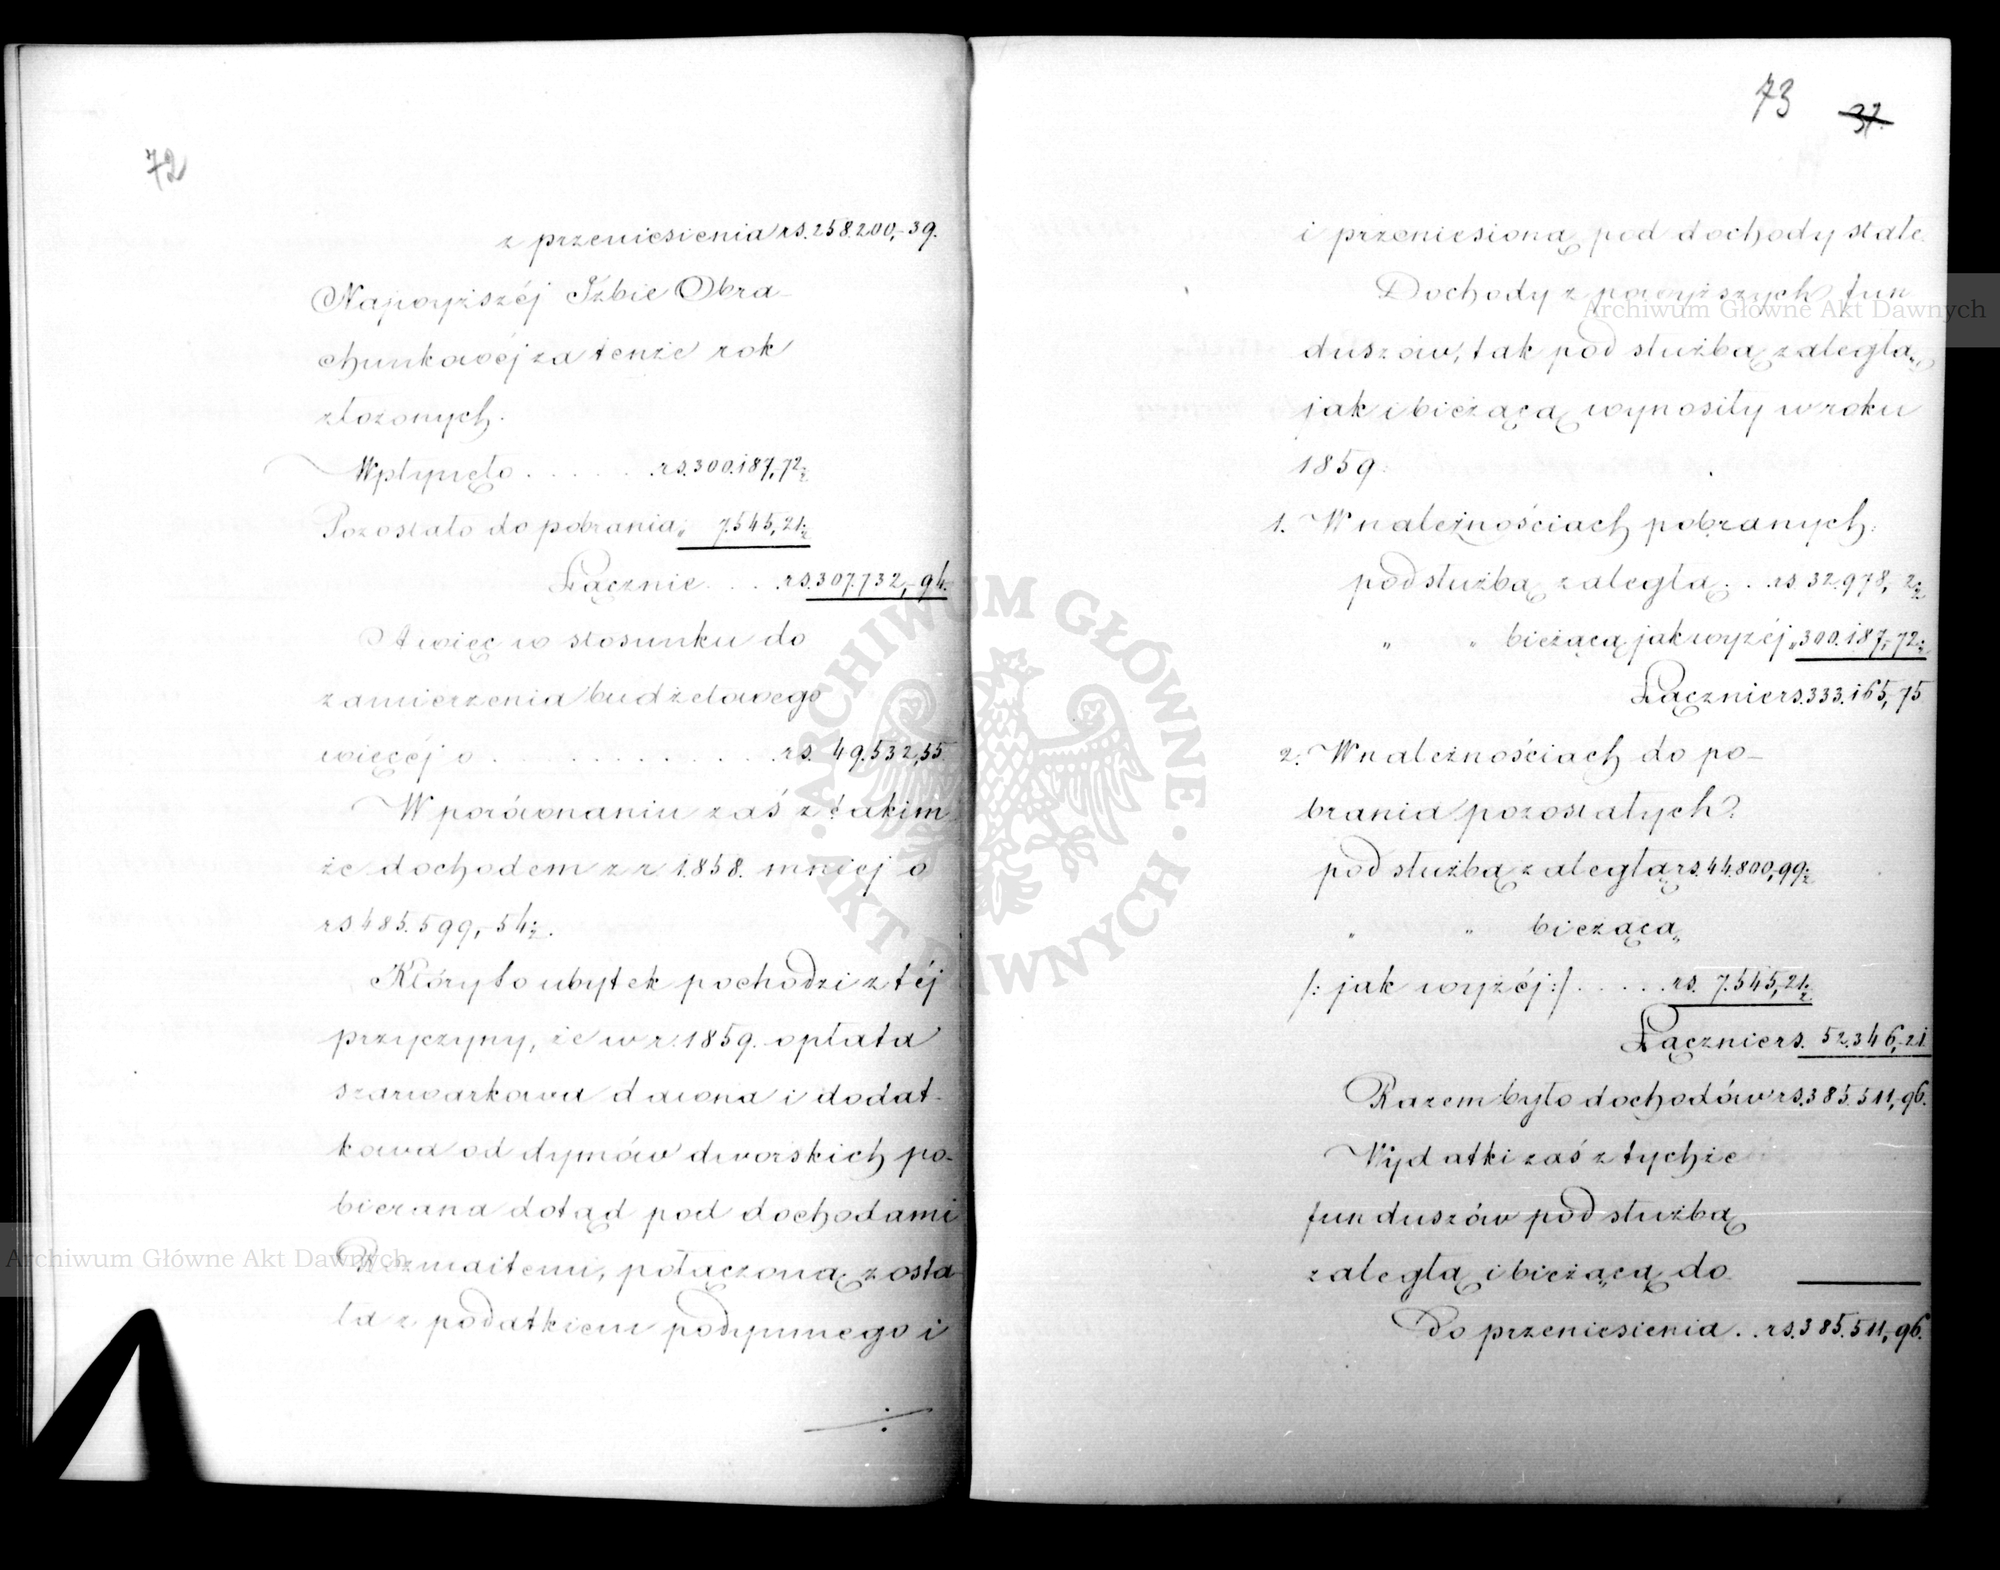 72
z przeniesienia rs. 258.200,-39.
Najwyższéj Izbie Obra-
chunkowéj za tenże rok
złożonych.
Wpłynęło . . . . . . rs. 300.187,72½
Pozostało do pobrania „ 7.545,21½
Łącznie . . . . rs. 307.732,-94.
A więc w stosunku do
zamierzenia budżetowego
więcéj o . . . . . . . . . . . . rs. 49.532,55
W porównaniu zaś z takim
że dochodem z r 1858. mniej o
rs 485.599,-54½.
Który to ubytek pochodzi z téj
przyczyny, że w r. 1859. opłata
szarwarkowa dawna i dodat-
kowa od dymów dworskich po-
bierana dotąd pod dochodami
Rozmaitemi, połączoną zosta-
ła z podatkiem podymnego i
73 37.
i przeniesioną pod dochody stałe.
Dochody z powyższych fun
duszów, tak pod służbą zaległą,
jak i bieżącą wynosiły w roku
1859:
1. W należnościach pobranych:
pod służbą zaległą . . rs 32.978,-2½
„ „ bieżącą jak wyżéj „ 300.187,-72½
Łącznie rs. 333.165,75
2. W należnościach do po-
brania pozostałych:
pod służbą zaległą rs. 44.800,-99½
„ „ bieżącą „
/: jak wyżéj :/ . . . . . rs. 7.545,-21½
Łącznie rs. 52.346,-21
Razem było dochodów rs. 385.511,-96.
Wydatki zaś z tychże
funduszów pod służbą
zaległą i bieżącą do
Do przeniesienia . . rs. 385.511,-96.
Archiwum Główne Akt Dawnych
Archiwum Główne Akt Dawnych
· ARCHIWUM GŁÓWNE · AKT DAWNYCH